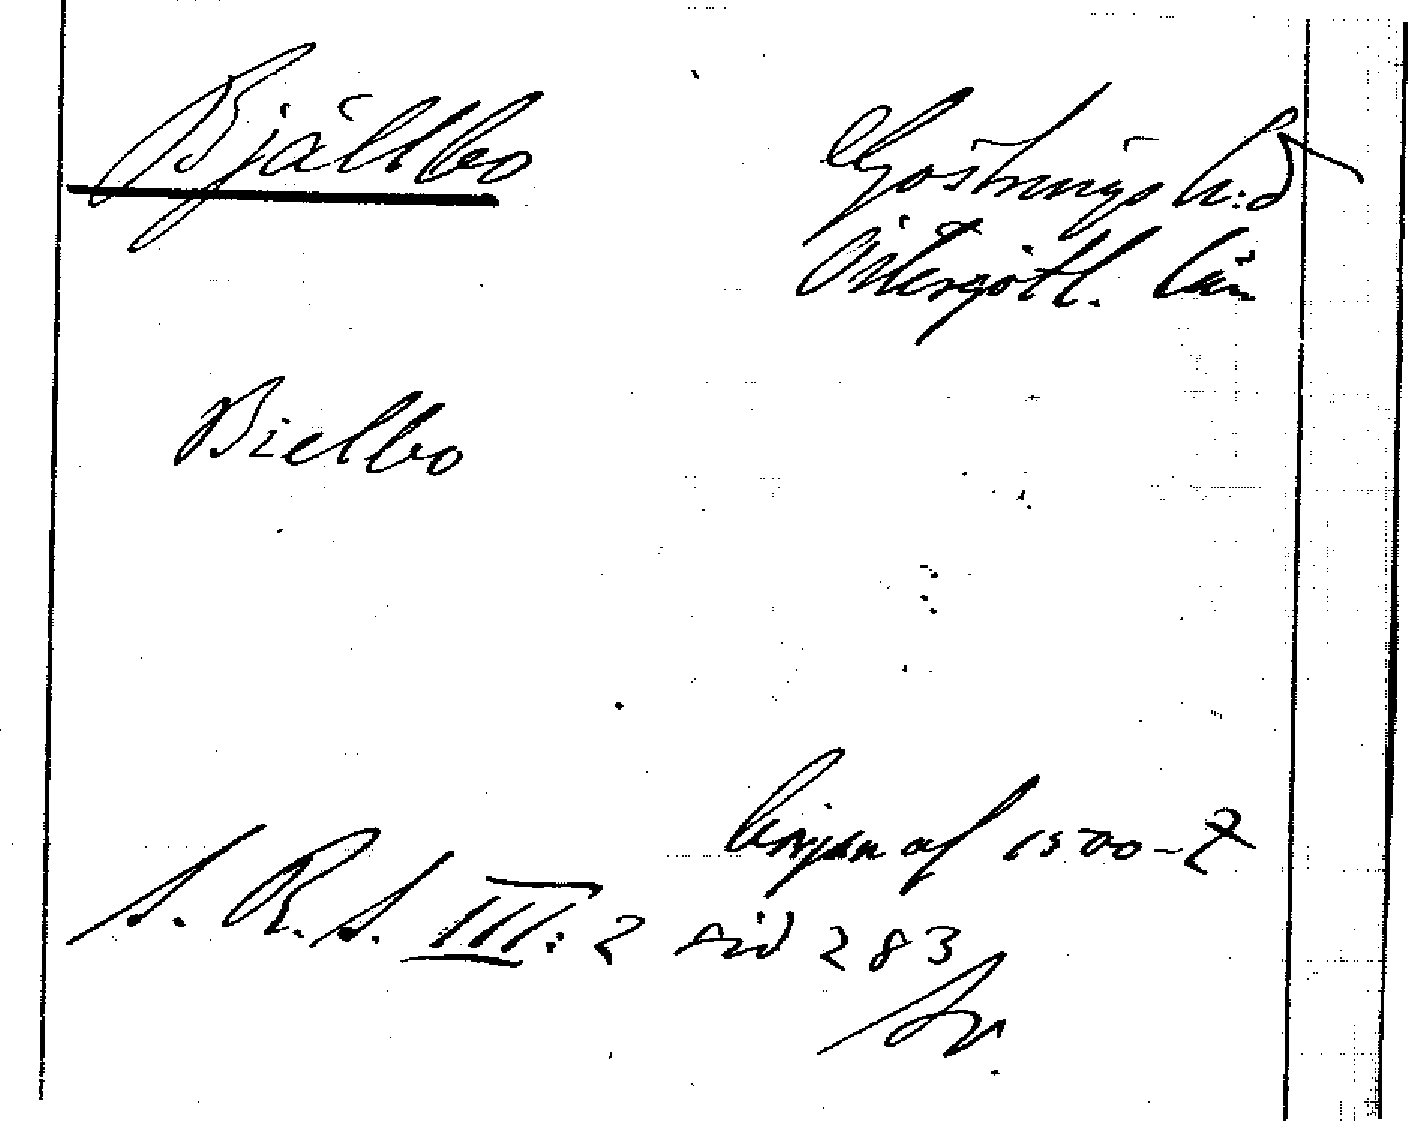 Bjälbo
Göstrings h:d
Östergötl. län
Bielbo
början af 1500-t
S. R. S. III: 2 sid 283
Sv.